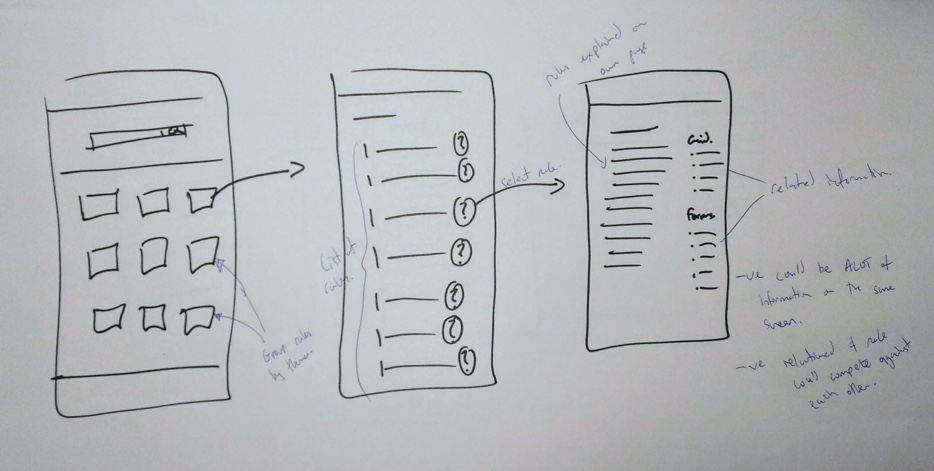 Group rules
by theme.
List of
rules.
?
?
?
?
?
?
?
select rule.
rules explained on
own page
Forms
related information
-ve could be ALOT of
information on the same
screen.
-ve related & rule
could compete against
each other.